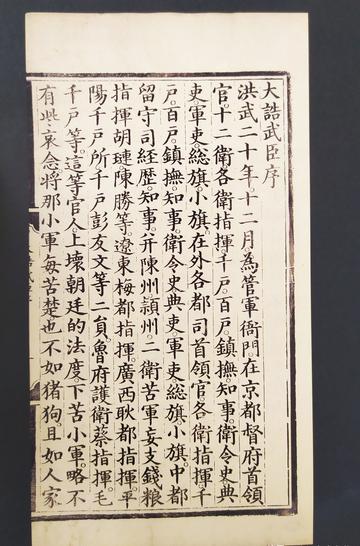 大誥武臣序
洪武二十年。十二月為管軍衙門。在京都督府首領
官。十二衛。各衛指揮。千戶。百戶。鎮撫。知事。衛令史典
吏。軍吏。總旗。小旗。在外各都司首領官。各衛指揮千
戶。百戶。鎮撫。知事。衛令史典吏。軍吏。總旗。小旗。中都
留守司経歷。知事。并陳州潁州。二衛苦軍妄支錢粮
指揮胡璉陳勝等。遼東梅都指揮。廣西耿都指揮。平
陽千戶所千戶彭友文等二貟。魯府護衛蔡指揮。毛
千戶等。這等官人。上壞朝廷的法度。下苦小軍。略不
有些哀念。將那小軍每苦楚也不如猪狗。且如人家